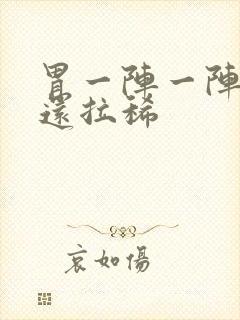 胃一陣一陣
還拉稀
哀如傷